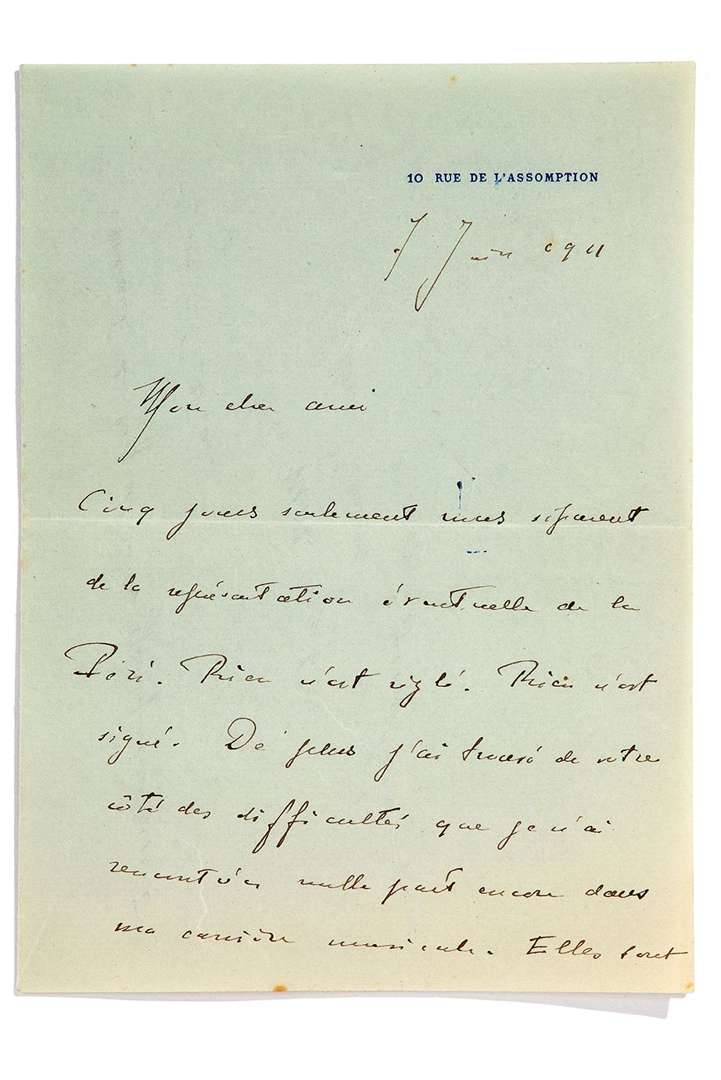 10 RUE DE L'ASSOMPTION
7 Juin 1911
Mon cher ami
Cinq jours seulement nous séparent
de la représentation éventuelle de la
Péri. Rien n'est réglé. Rien n'est
signé. De plus j'ai trouvé de votre
côté des difficultés que je n'ai
rencontrées nulle part encore dans
ma carrière musicale. Elles sont